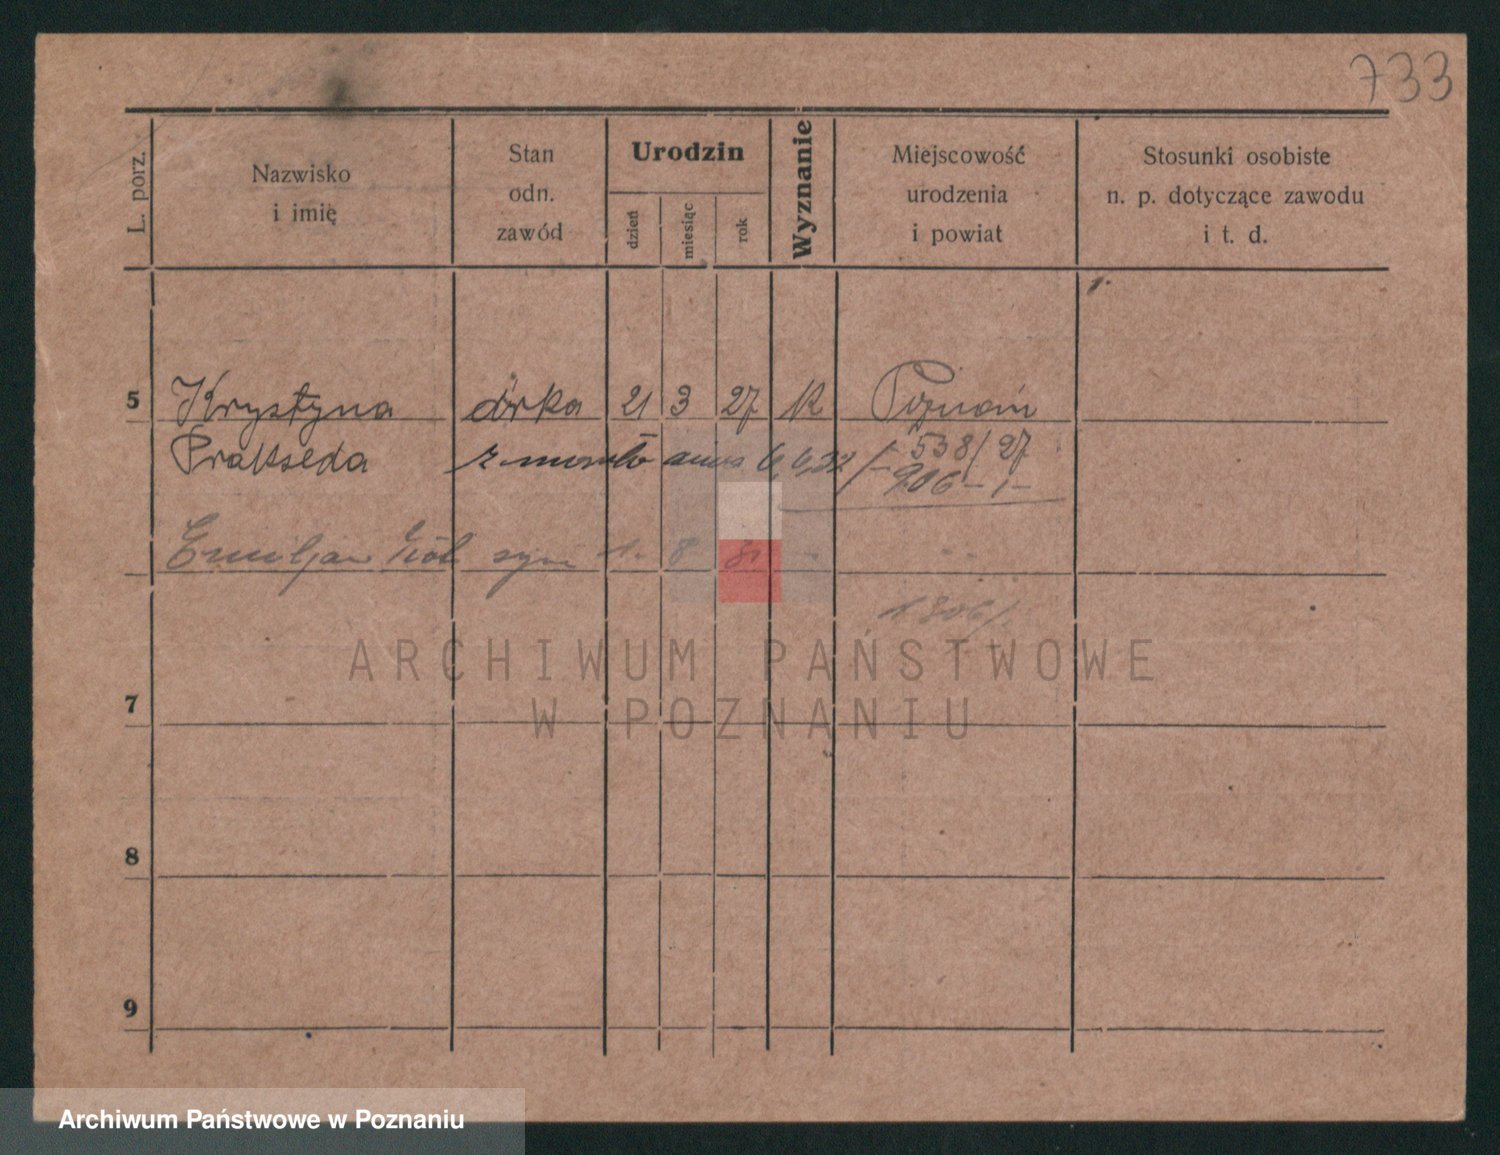 733
L. porz.
Nazwisko
i imię
Stan
odn.
zawód
Urodzin
dzień
miesiąc
rok
Wyznanie
Miejscowość
urodzenia
i powiat
Stosunki osobiste
n. p. dotyczące zawodu
i t. d.
5 Krystyna córka 21 3 27 K Poznań
Prakseda 538/27
906-1-
Emiljan syn 1. 8 31
7
8
9
ARCHIWUM PAŃSTWOWE
W POZNANIU
Archiwum Państwowe w Poznaniu